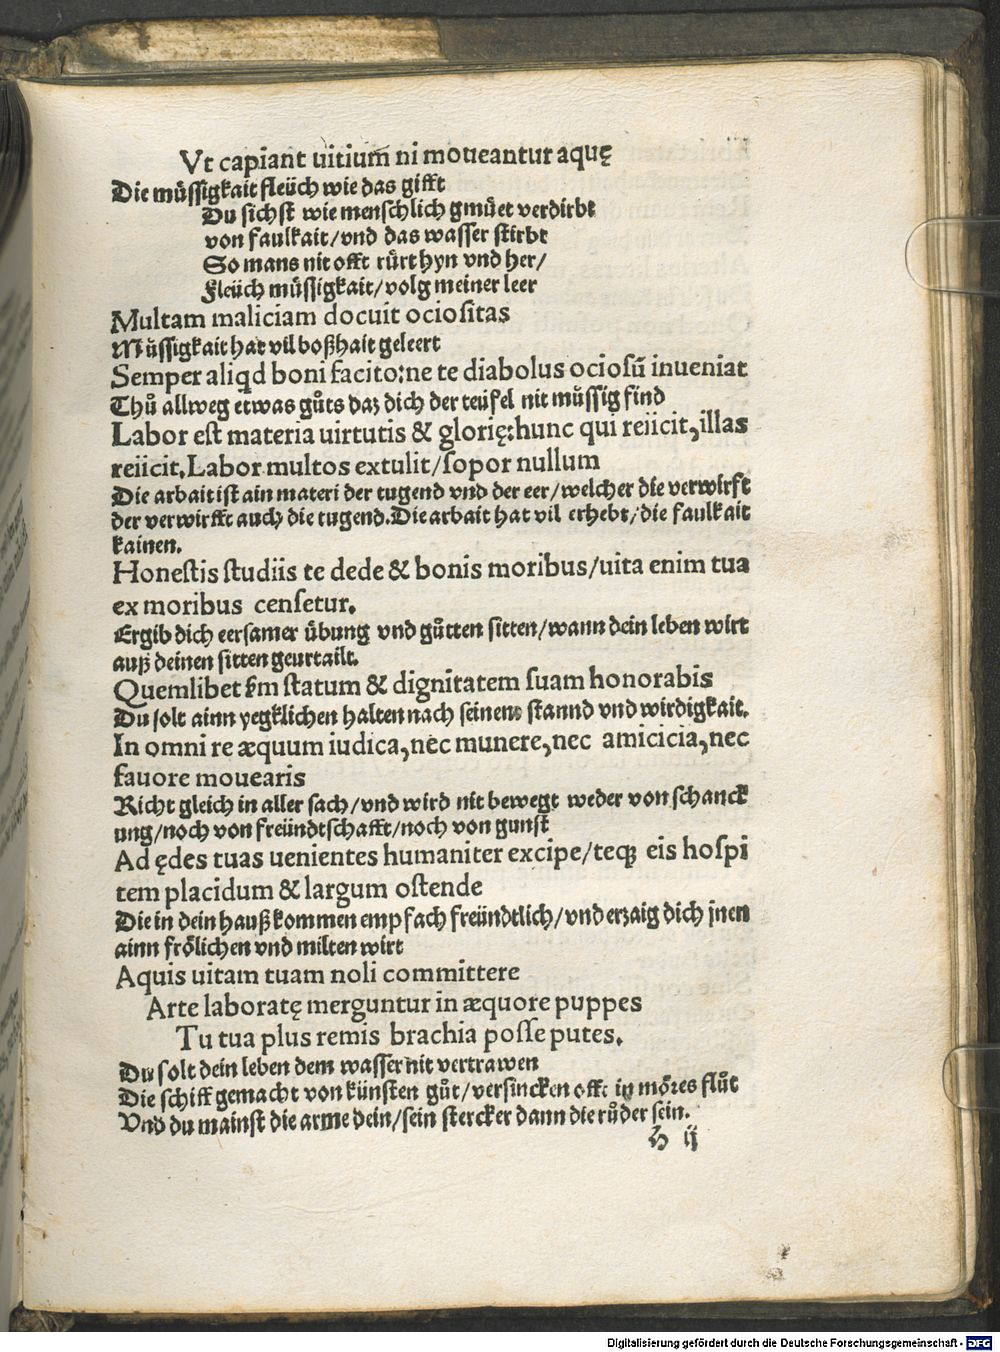 Vt capiant uitium ni moueantur aquę
Die müssigkait fleüch wie das gifft
Du sichst wie menschlich gmüet verdirbt
von faulkait/vnd das wasser stirbt
So mans nit offt rürt hyn vnd her/
Fleüch müssigkait/volg meiner leer
Multam maliciam docuit ociositas
Müssigkait hat vil boßhait geleert
Semper aliqd boni facito:ne te diabolus ociosū inueniat
Thuͦ allweg etwas guͦts daz dich der teüfel nit müssig find
Labor est materia uirtutis & glorię:hunc qui reiicit,illas
reiicit.Labor multos extulit/sopor nullum
Die arbait ist ain materi der tugend vnd der eer/welcher die verwirft
der verwirfft auch die tugend.Die arbait hat vil erhebt/die faulkait
kainen.
Honestis studiis te dede & bonis moribus/uita enim tua
ex moribus censetur.
Ergib dich eersamer übung vnd guͦtten sitten/wann dein leben wirt
auß deinen sitten geurtailt.
Quemlibet ẜm statum & dignitatem suam honorabis
Du solt ainn yegklichen halten nach seinem stannd vnd wirdigkait.
In omni re æquum iudica,nec munere,nec amicicia,nec
fauore mouearis
Richt gleich in aller sach/vnd wird nit bewegt weder von schanck
ung/noch von freündtschafft/noch von gunst
Ad ędes tuas uenientes humaniter excipe/teqꝫ eis hospi
tem placidum & largum ostende
Die in dein hauß kommen empfach freündtlich/vnd erzaig dich jnen
ainn frölichen vnd milten wirt
Aquis uitam tuam noli committere
Arte laboratę merguntur in æquore puppes
Tu tua plus remis brachia posse putes.
Du solt dein leben dem wasser nit vertrawen
Die schiff gemacht von künsten guͦt/versincken offt in möres fluͦt
Vnd du mainst die arme dein/sein stercker dann die ruͦder sein.
b ij
Digitalisierung gefördert durch die Deutsche Forschungsgemeinschaft - DFG